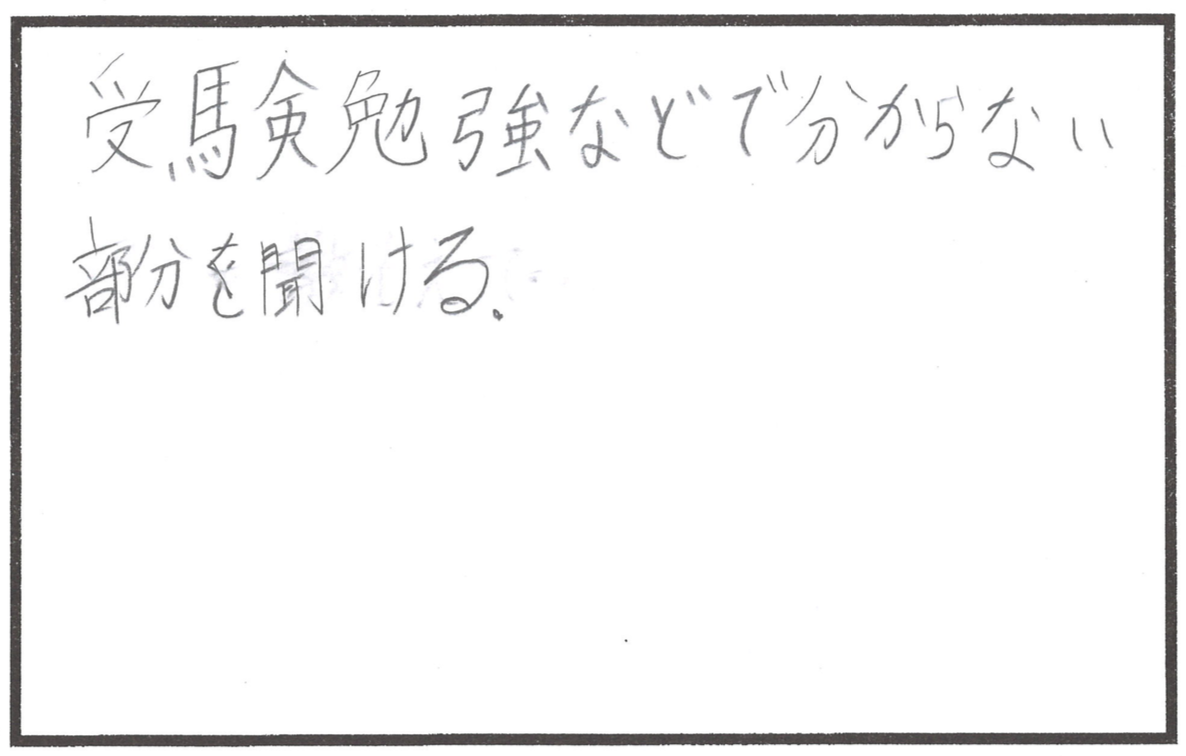 受験勉強などで分からない
部分を聞ける.